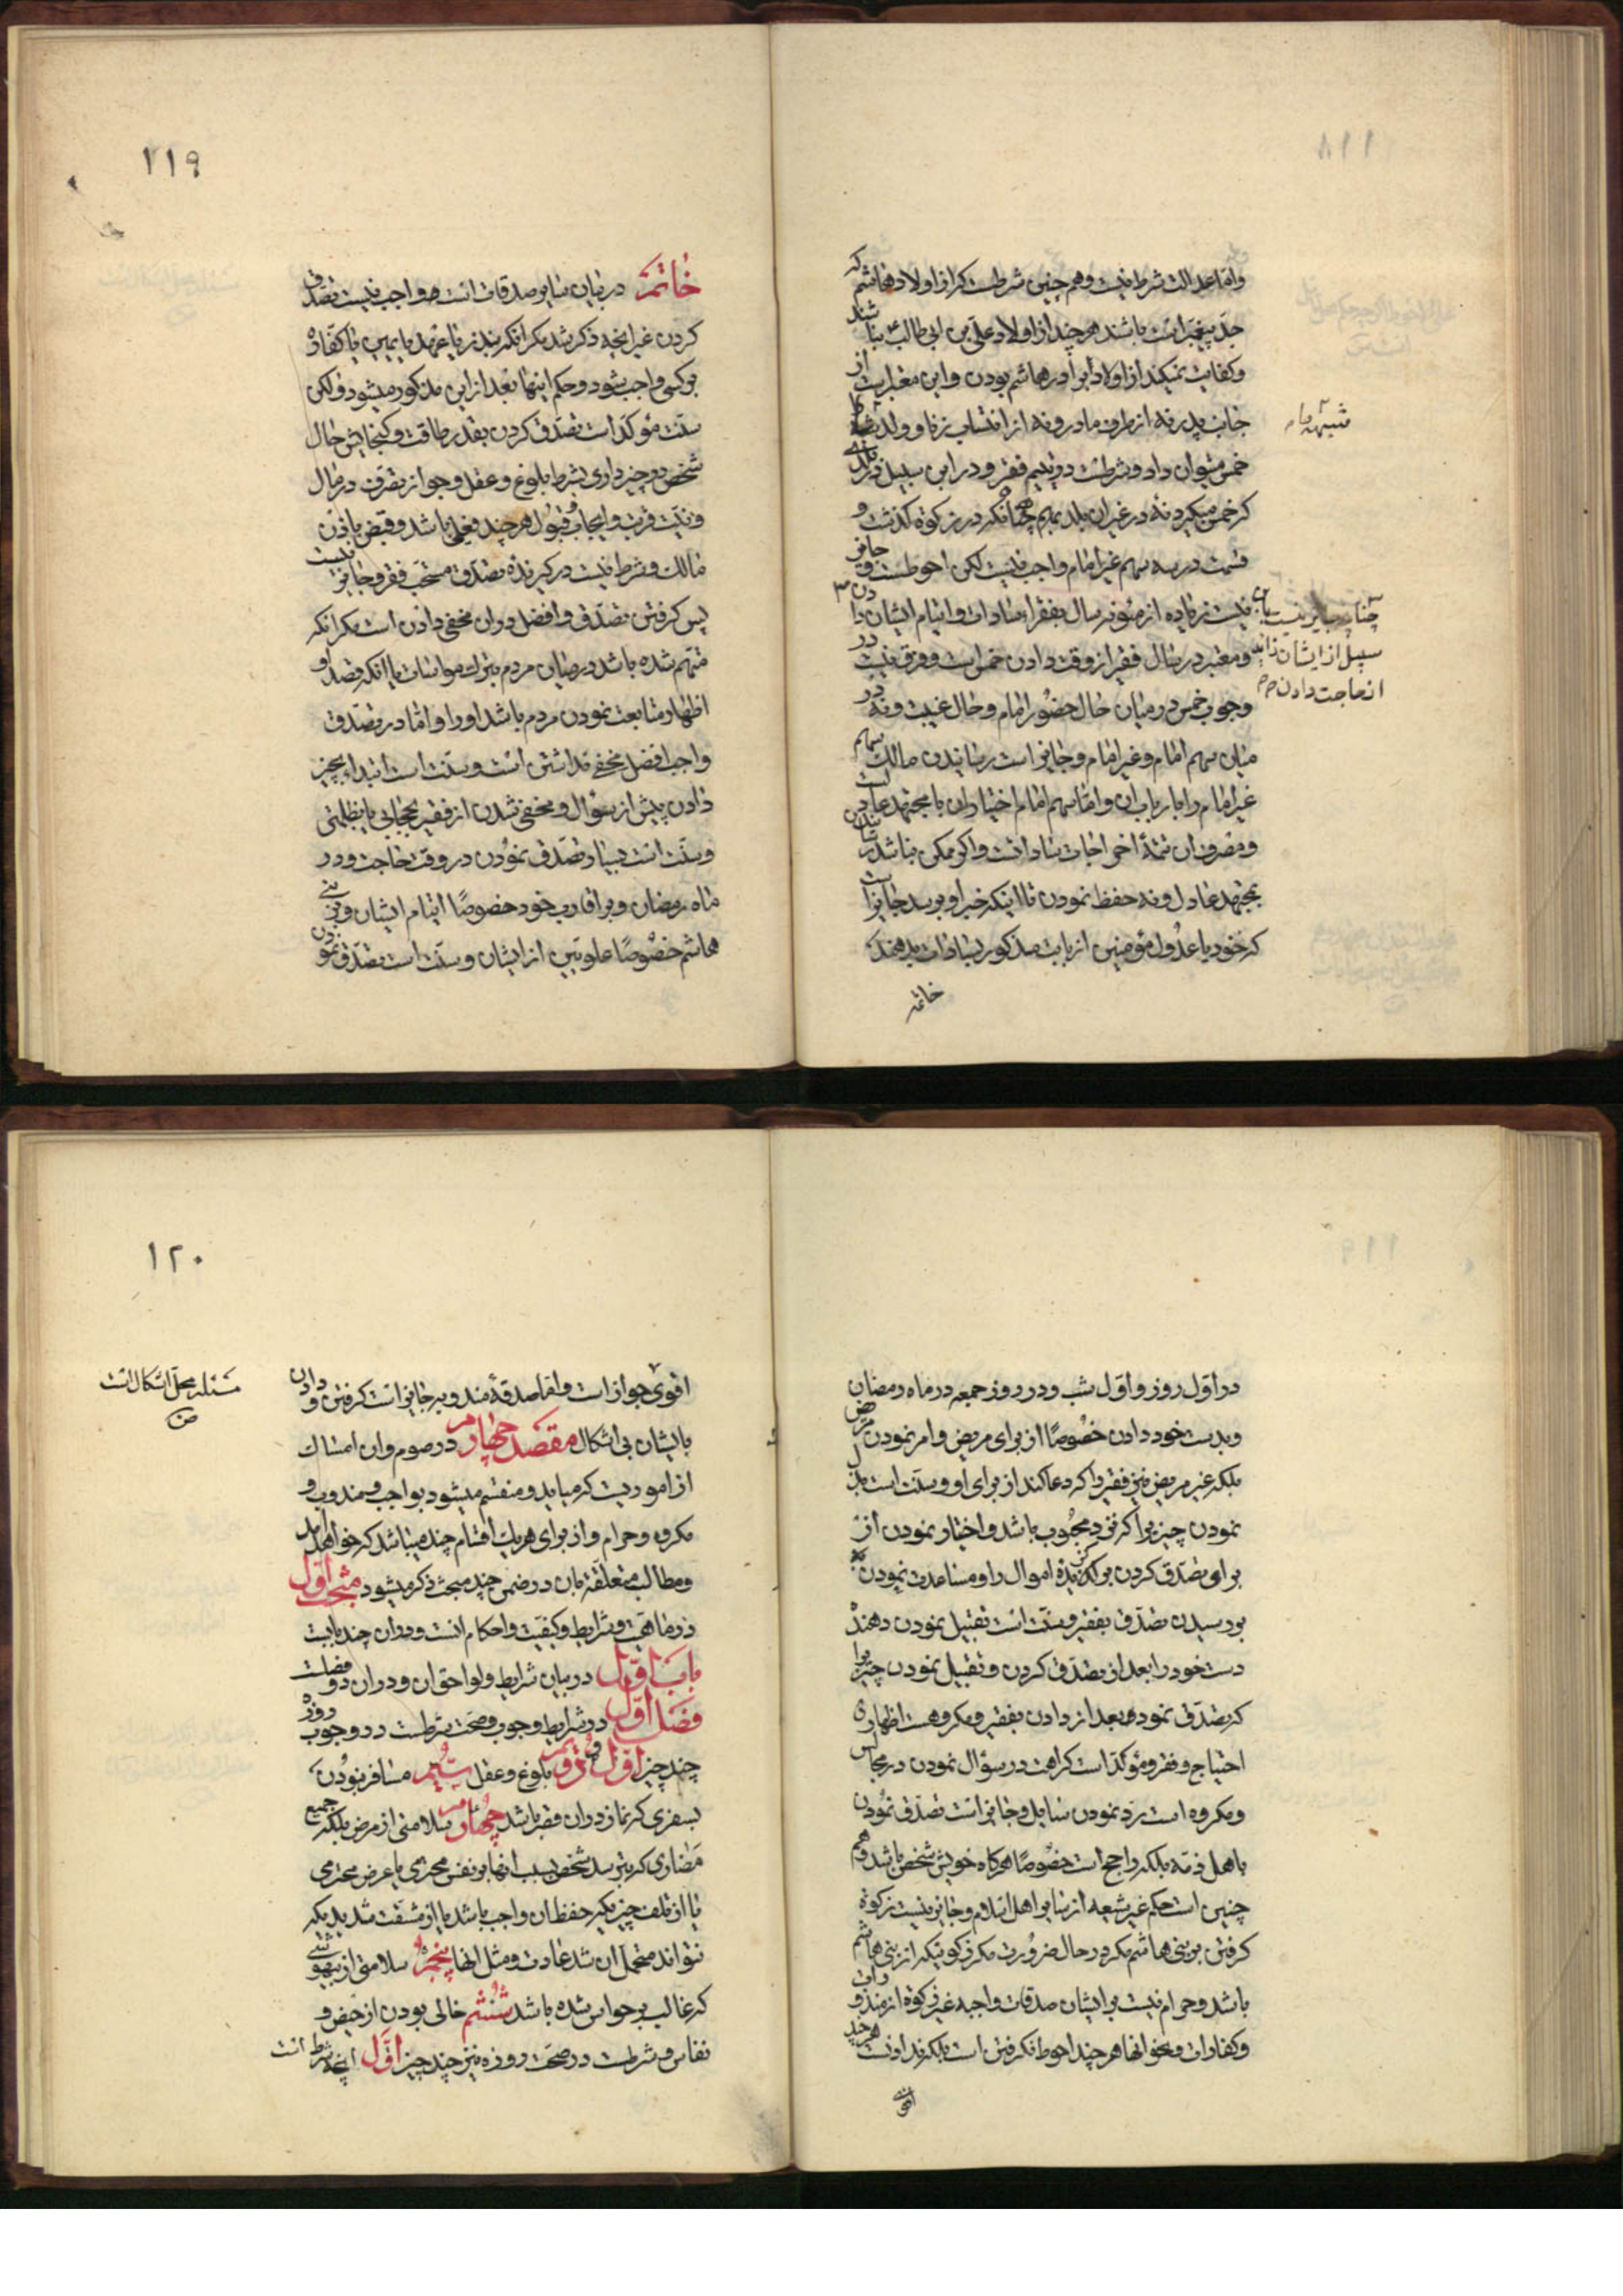 واما عدالت شرط نیست و هم چنین شرطست که از اولاد هاشم که
جد پیغمبر است باشند هر چند از اولاد علی بن ابی طالب نباشند
و کفایت نمیکند از اولاد برادر هاشم بودن و این معتبر است از
جانب پدر نه از طرف مادر و نه از انتساب زنا و ولد
خمس میتوان داد و شرطست در یتیم فقر و در ابن سبیل در بلدی
که خمس میگیرد نه در غیر ان بلد بهم چنانکه در زکوة گذشت و
قسمت در سه سهم غیر امام واجب نیست لکن احوطست و جایز
نیست زیاده از مؤنه سال بفقراء سادات و ایتام ایشان دادن
و معتبر در سال فقیر از وقت دادن خمس است و فرق نیست در
وجوب خمس در میان حال حضور امام و حال غیبت و نه در
میان سهم امام و غیر امام و جایز است رسانیدن مالک سهام
غیر امام را بارباب ان و اما سهم امام اختیار ان با مجتهد عادلست
و مصرف ان تتمهٔ اخراجات سادات است و اگر ممکن نباشد رسانیدن
بمجتهد عادل و نه حفظ نمودن تا اینکه خبر او برسد جایز است
که خود یا عدول مؤمنین از بابت مذکور بسادات بدهند
خاتمه
مشتبه
جایز نیست
سبیل از ایشان
حاجت دادن
۱۱۹
خاتمه در بیان سایر صدقات است و واجب نیست تصدق
کردن غیر آنچه ذکر شد مگر آنکه بنذر یا عهد یا یمین یا کفاره
بر کسی واجب شود و حکم اینها بعد از این مذکور میشود و لکن
سنت مؤکد است تصدق کردن بقدر طاقت و گنجایش حال
شخص و چیز داری بشرط بلوغ و عقل و جواز تصرف در مال
و نیت قربت و ایجاب و قبول هر چند فعلی باشد و قبض باذن
مالک و شرط نیست در گیرنده تصدق مستحب فقر و جایز نیست
پس گرفتن تصدق و افضل در ان مخفی دادن است مگر آنکه
متهم شده باشد در میان مردم بترک مواسات یا آنکه قصد او
اظهار متابعت نمودن مردم باشد او را و اما در تصدق
واجب افضل مخفی نداشتن است و سنت است ابتداء بچیز
دادن پیش از سؤال و مخفی شدن از فقیر بحجابی یا بظلمتی
و سنت است بسیار تصدق نمودن در وقت حاجت و در
ماه رمضان و بر اقارب خود خصوصًا ایتام ایشان و بنی
هاشم خصوصًا علویین از ایشان و سنت است تصدق نمودن
در اول روز و اول شب و در روز جمعه در ماه رمضان
و بدست خود دادن خصوصًا از برای مریض و امر نمودن مریض
بلکه غیر مریض نیز فقیر را که دعا کند از برای او و سنت است بذل
نمودن چیزیرا که نزد او محبوب باشد و اختیار نمودن از
برای تصدق کردن پاکیزه اموال را و مساعدت نمودن
برسیدن تصدق بفقیر و سنت است تقبیل نمودن دهنده
دست خود را بعد از تصدق کردن و تقبیل نمودن چیزیرا
که تصدق نموده بعد از دادن بفقیر و مکروهست اظهار
احتیاج و فقر و مؤکد است کراهت در سؤال نمودن در مجالس
و مکروه است رد نمودن سایل و جایز است تصدق نمودن
باهل ذمه بلکه راجح است خصوصًا هرگاه خویش شخص باشد و هم
چنین است حکم غیر شیعه از سایر اهل اسلام و جایز نیست زکوة
گرفتن بر بنی هاشم مگر در حال ضرورت مگر زکوتیکه از بنی هاشم
باشد و حرام نیست بر ایشان صدقات واجبه غیر زکوة از منذورات
و کفارات و نحو آنها هر چند احوط نگرفتن است بلکه هر چند
اقوی
۱۲۰
اقوی جواز است و اما صدقهٔ مندوبه جایز است گرفتن و دادن
بایشان بی اشکال مقصد چهارم در صوم و ان امساک
از اموریست که میاید و منقسم میشود بواجب و مندوب و
مکروه و حرام و از برای هر یک اقسام چند میباشد که خواهد آمد
و مطالب متعلقه بان در ضمن چند مبحث ذکر میشود مبحث اول
در ماهیت و شرایط و کیفیت و احکام است و در ان چند بابست
باب اول در بیان شرایط و لواحق ان و در ان دو فصلست
فصل اول در شرایط وجوب و صحت شرطست در وجوب روزه
چند چیز اول و دویم بلوغ و عقل سیم مسافر نبودن
بسفری که نماز در ان قصر باشد چهارم سلامتی از مرض بلکه جمیع
مضاری که بترسد شخص بسبب انها بر نفس محترمی یا عرض محترمی
یا از تلف چیزیکه حفظ ان واجب باشد یا از مشقت شدیدیکه
نتواند متحمل ان شد عادت و مثل انها پنجم سلامتی از بیهوشی
که غالب بر حواس شده باشد ششم خالی بودن از حیض و
نفاس و شرطست در صحت روزه نیز چند چیز اول انچه شرط است
مسئله محل اشکال است